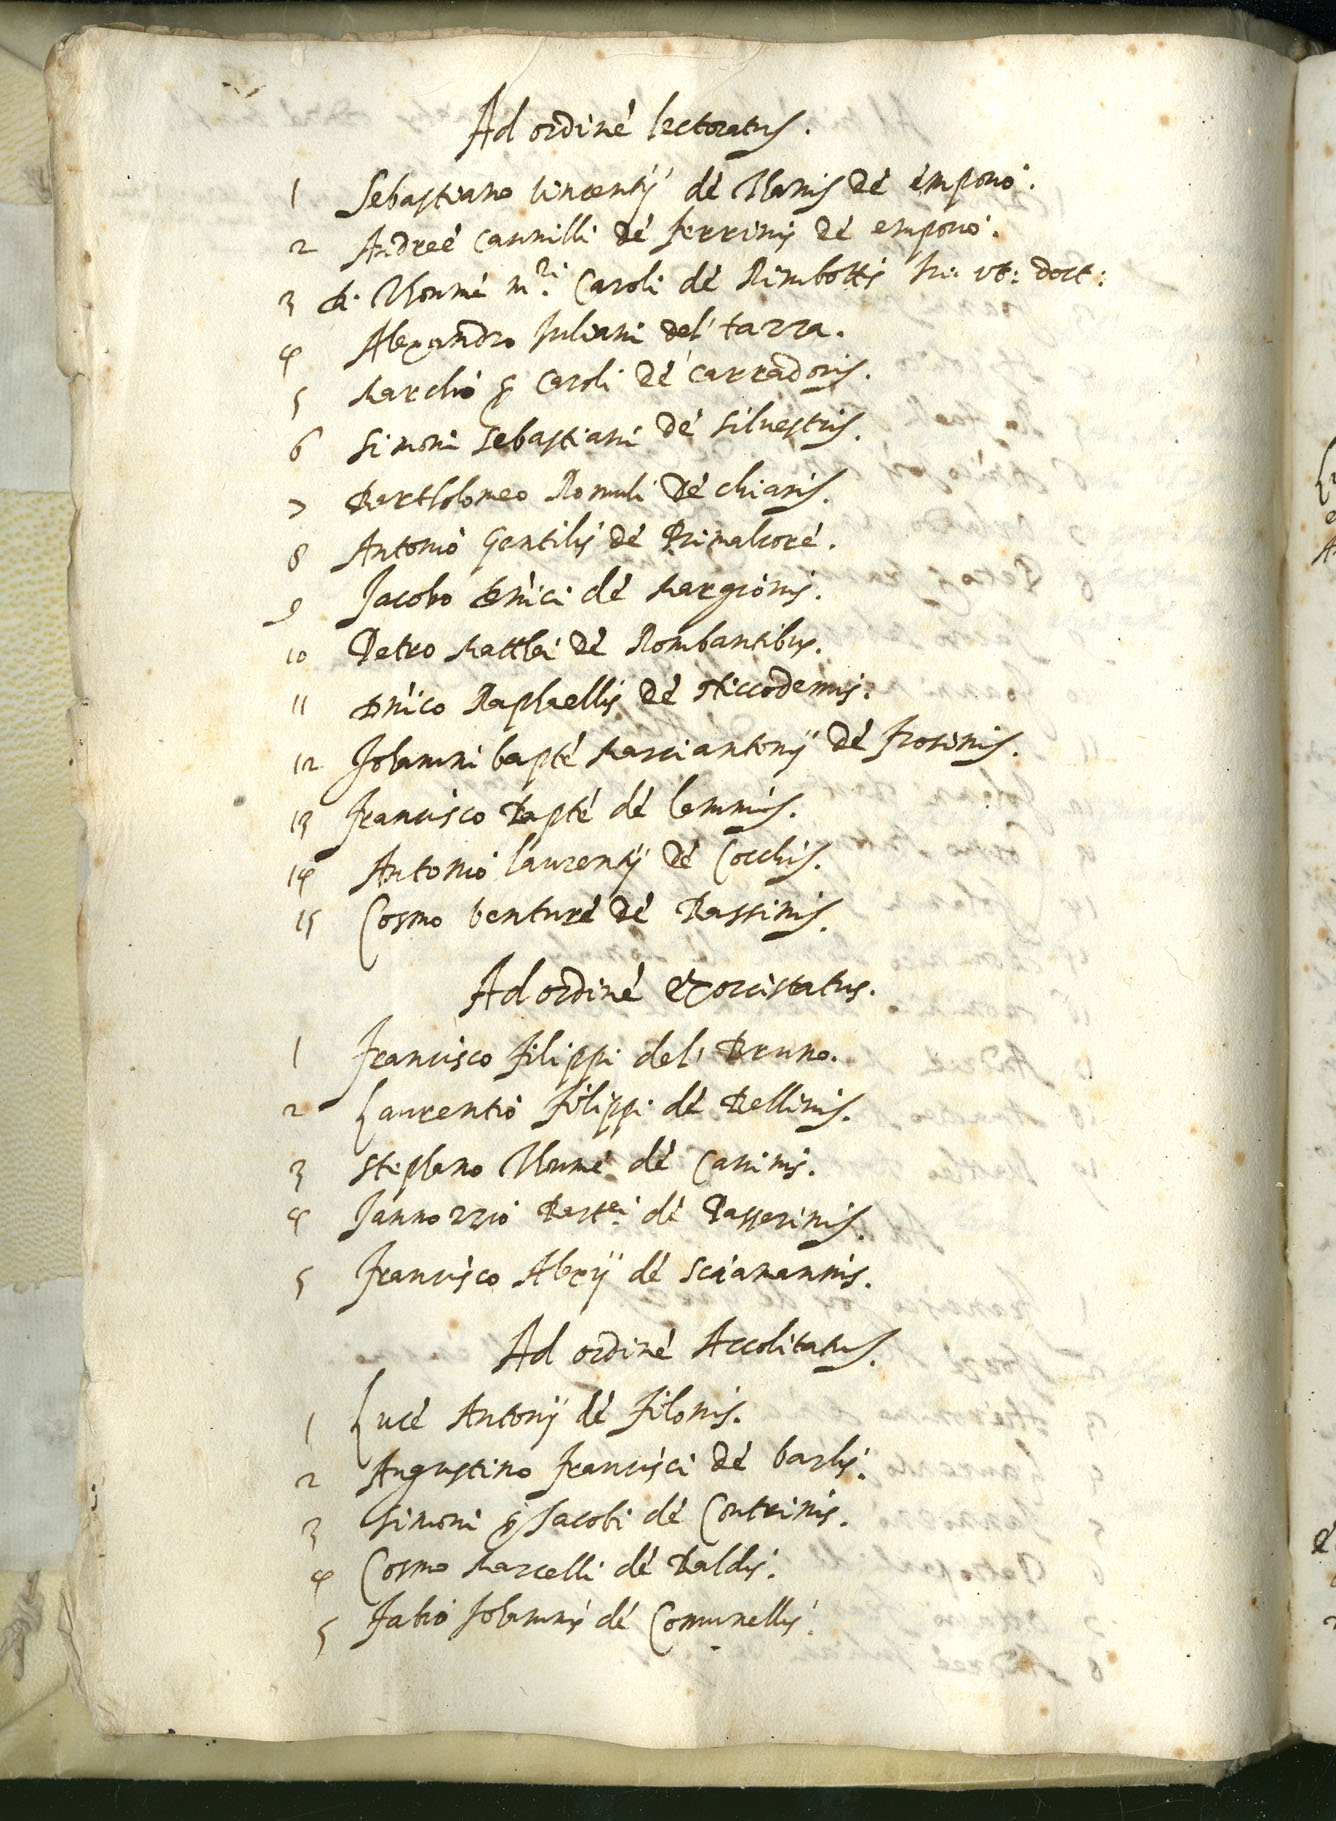 Ad ordinè lectoratus.
1 Sebastiano Vincentij dè Nanis dè emporio.
2 Andreè Cammilli dè ferrinis dè emporio.
3 d. Thomè m.ri Caroli dè Rimbottis Iu: ut: doct:
4 Alexandro Iuliani del' tazza.
5 Marchio q Caroli dè Carradoris.
6 Simoni Sebastiani dè Silvestris.
7 Bartholomeo Romuli dè chiaris.
8 Antonio Gentilis dè Primalcore.
9 Jacobo dnìci dè Margionis.
10 Petro Matthei dè Rombantibus.
11 Dnìco Raphaellis dè Niccodemis.
12 Iohanni baptè Marciantonij dè frosinis.
13 Francisco Baptè dè lemmis.
14 Antonio laurentij dè Cocchis.
15 Cosmo benturè dè Bassinis.
Ad ordinè exorcistatus.
1 Francisco filippi del' Bruno.
2 Laurentio filippi dè Bellinis.
3 Stephano Thomè dè Caninis.
4 Jannozzio Bart.ei dè Passerinis.
5 Francisco Alexij dè Sciamannis.
Ad ordinè Accolitatus.
1 Lucè Antonij dè filonis.
2 Augustino Francisci dè barlis.
3 Simoni q Jacobi dè Contrinis.
4 Cosmo Marcelli dè Baldis.
5 Fabio Iohannis dè Comunellis.